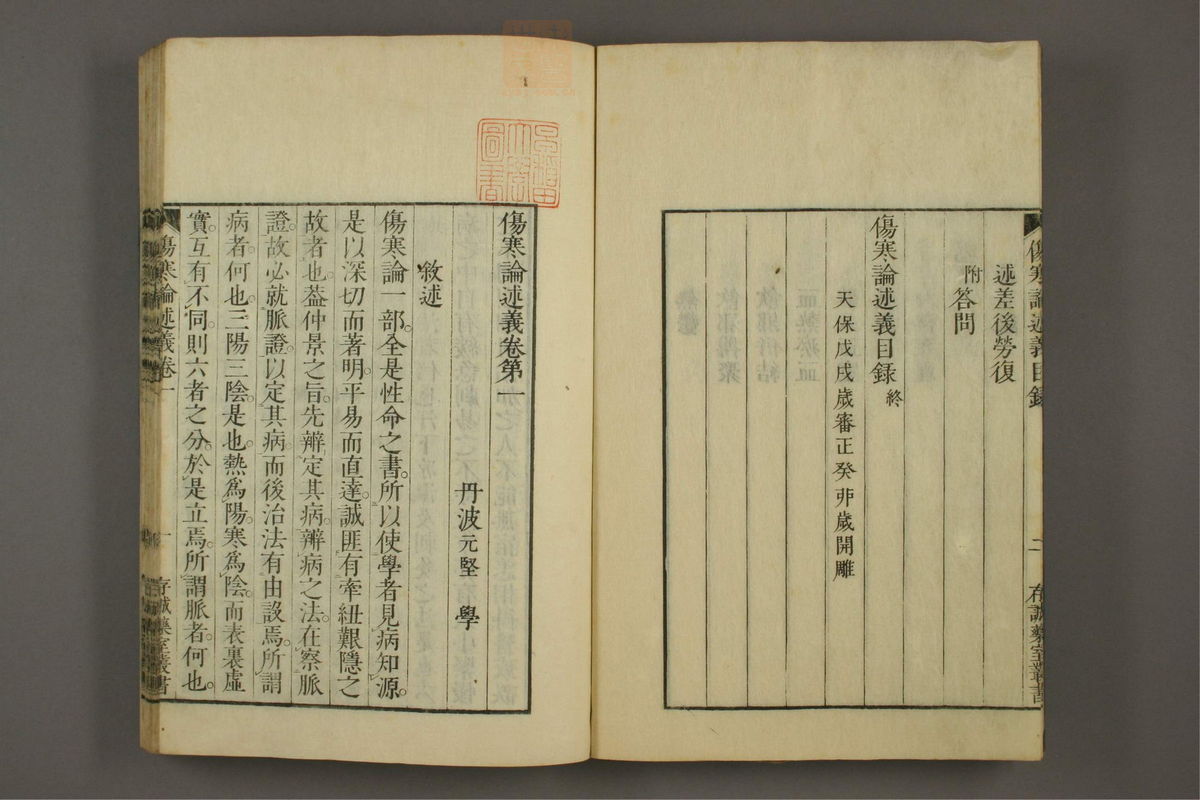 傷寒論述義目録
二
存誠藥室叢書
述差後勞復
附答問
傷寒論述義目録終
天保戊戌歳審正癸丱歳開雕
傷寒論述義卷第一
丹波元堅 學
敘述
傷寒論一部。全是性命之書。所以使學者見病知源。
是以深切而著明。平易而直達。誠匪有牽紐艱隱之
故者也。葢仲景之旨。先辨定其病。辨病之法。在察脈
證。故必就脈證。以定其病。而後治法有由設焉。所謂
病者。何也。三陽三陰。是也。熱爲陽。寒爲陰。而表裏虛
實。互有不同。則六者之分。於是立焉。所謂脈者。何也。
傷寒論述義卷一
一
存誠藥室叢書